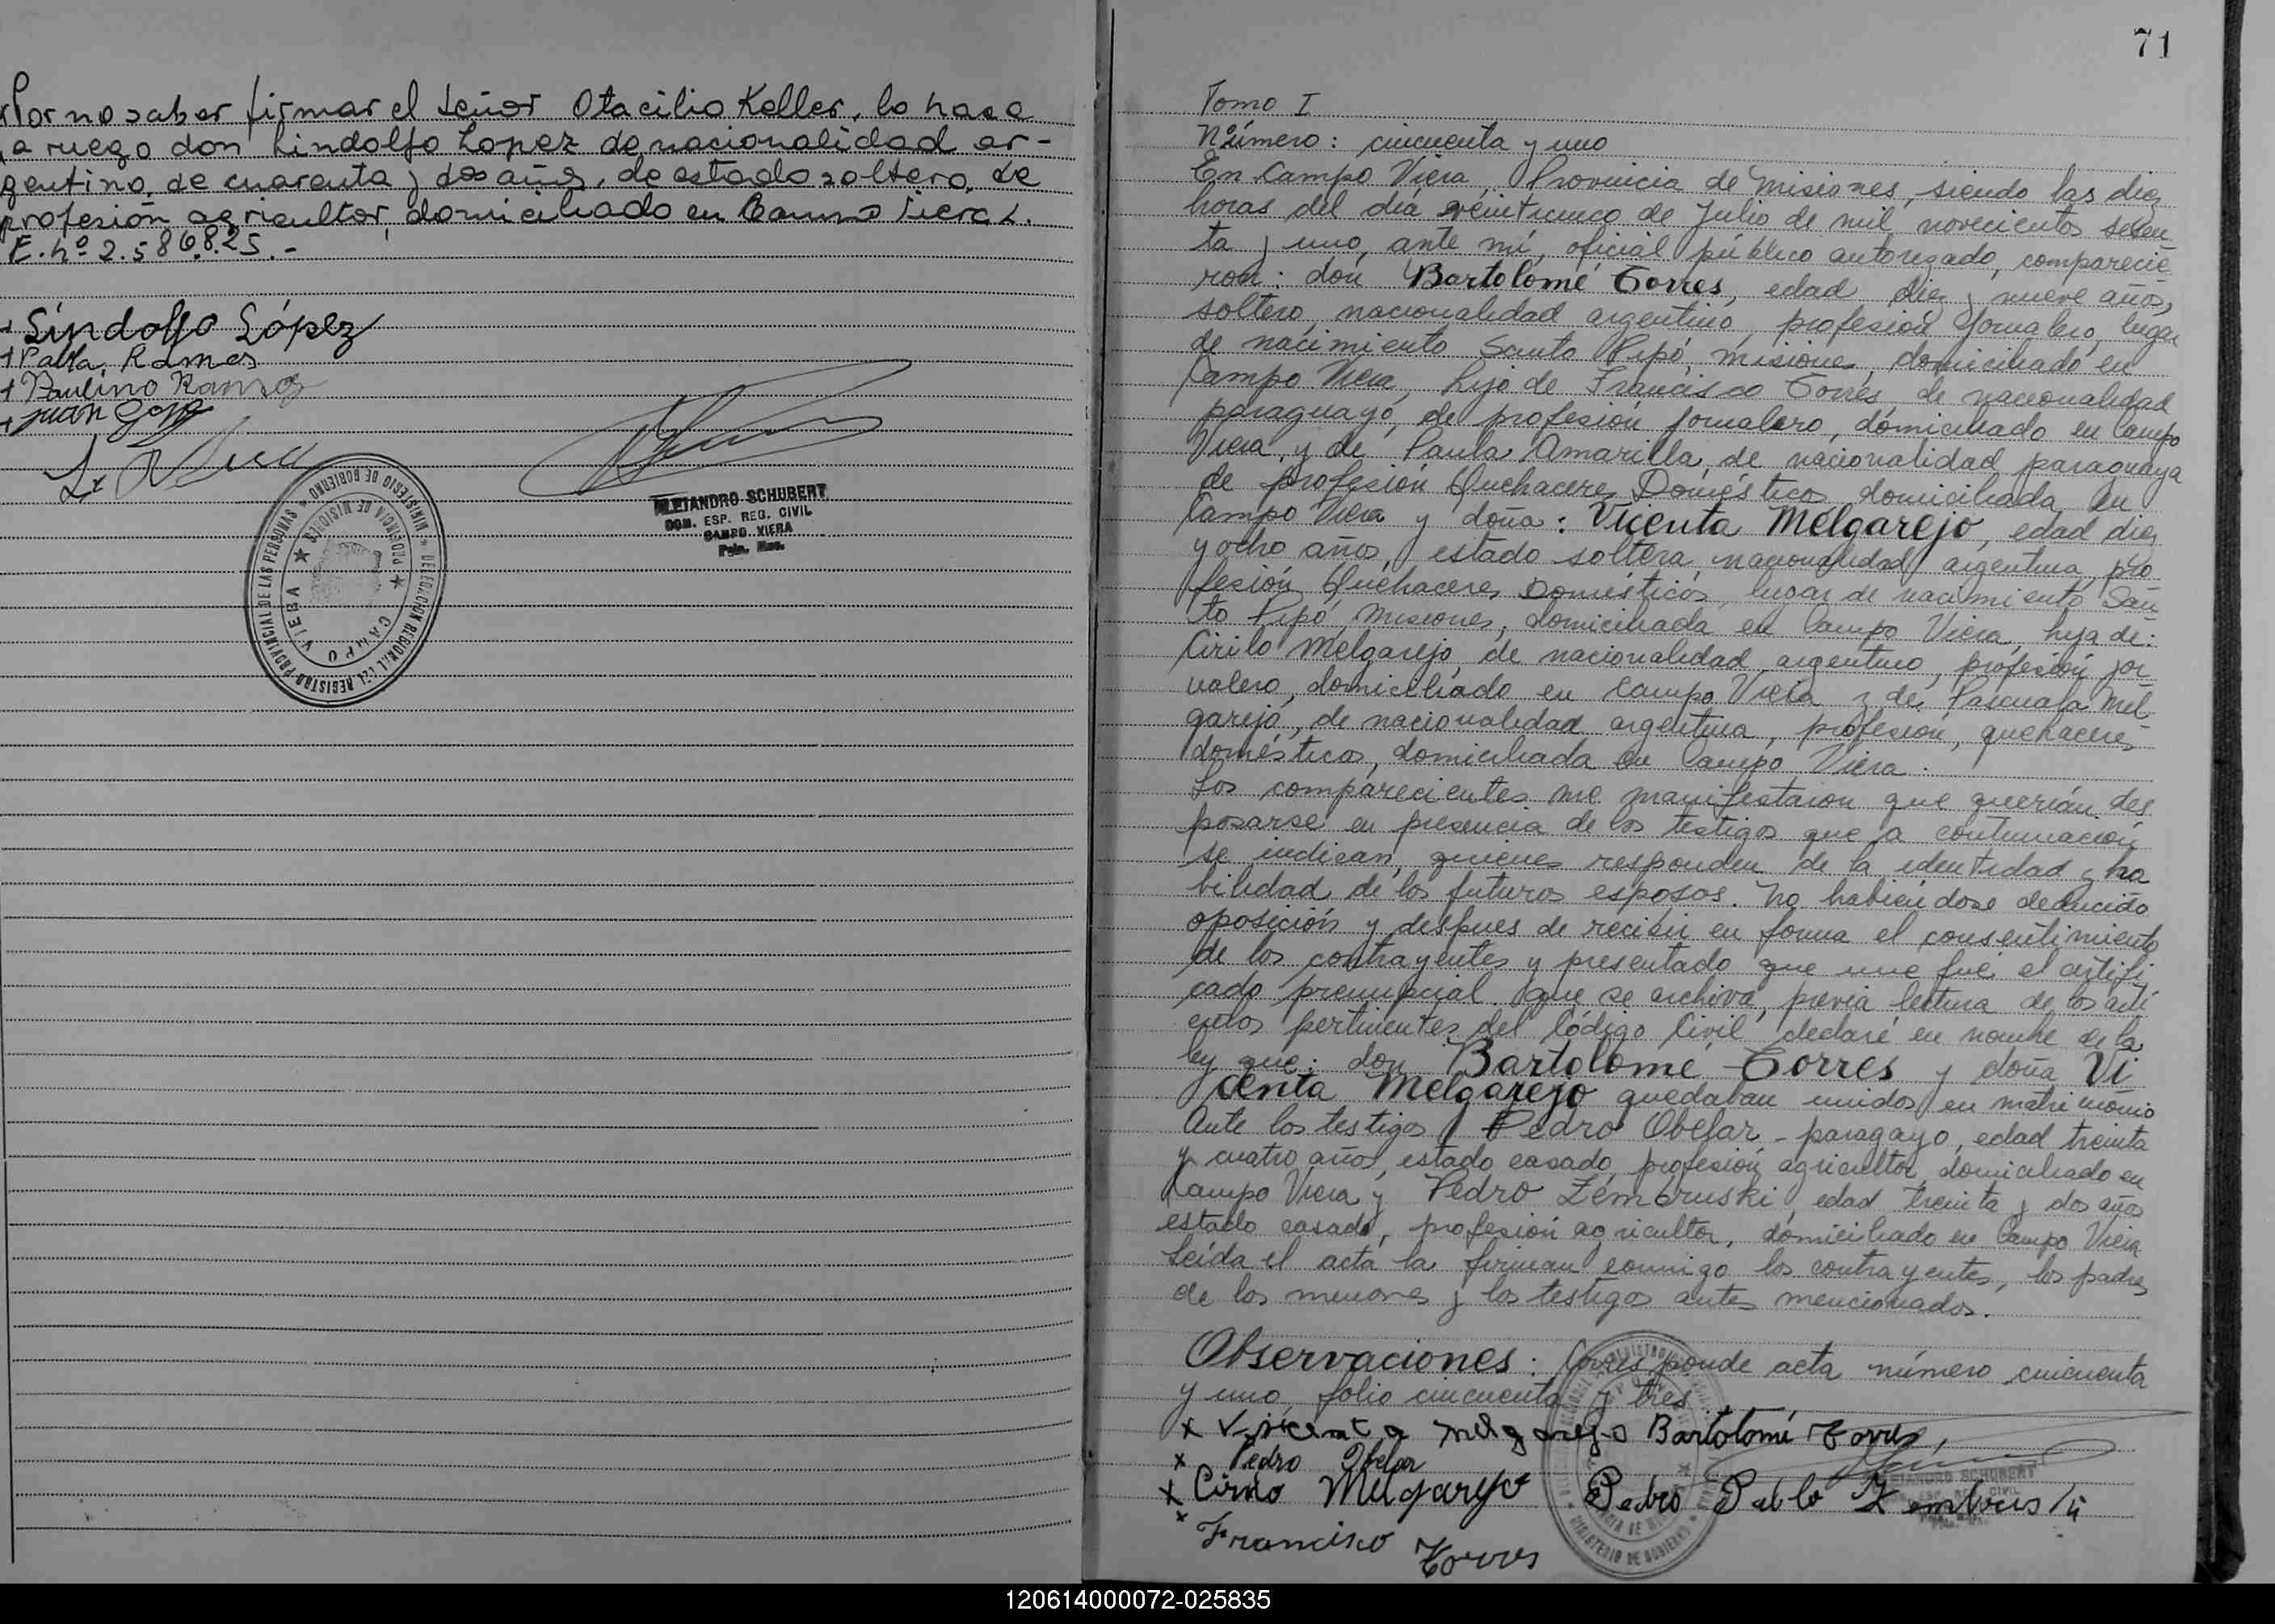 Por no saber firmar el señor Otacilio Keller, lo hase
a ruego don Lindolfo Lopez de nacionalidad ar-
gentino, de cuarenta y dos años, de estado soltero, de
profesión agricultor, domiciliado en Campo Viera L.
E. nº 2.586.825.-
Lindolfo López
Ramos
Paulino Ramos
Juan
ALEJANDRO SCHUBERT
COM. ESP. REG. CIVIL
CAMPO VIERA
Pcia. Mns.
MINISTERIO DE GOBIERNO ★ DELEGACION REGIONAL DEL REGISTRO PROVINCIAL DE LAS PERSONAS
PROVINCIA DE MISIONES ★ CAMPO VIERA ★
71
Tomo I
Número: cincuenta y uno
En Campo Viera, Provincia de Misiones, siendo las diez
horas del día veinticinco de Julio de mil novecientos seten
ta y uno, ante mí, oficial público autorizado, comparecie
ron: don Bartolomé Torres, edad diez y nueve años,
soltero, nacionalidad argentino, profesión jornalero, lugar
de nacimiento Santo Pipó, misiones, domiciliado en
Campo Viera, hijo de Francisco Torres, de nacionalidad
paraguayo, de profesión jornalero, domiciliado en Campo
Viera, y de Paula Amarilla, de nacionalidad paraguaya
de profesión Quehaceres Domésticos, domiciliada en
Campo Viera y doña: Vicenta Melgarejo, edad diez
y ocho años, estado soltera, nacionalidad argentina, pro
fesión Quehaceres Domésticos, lugar de nacimiento San
to Pipó, Misiones, domiciliada en Campo Viera, hija de:
Cirilo Melgarejo, de nacionalidad argentino, profesión jor
nalero, domiciliado en Campo Viera y de Pascuala Mel
garejo, de nacionalidad argentina, profesión, quehaceres
domésticos, domiciliada en Campo Viera.
Los comparecientes me manifestaron que querían des
posarse en presencia de los testigos que a continuación
se indican, quienes responden de la identidad y ha
bilidad de los futuros esposos. No habiéndose deducido
oposición y despues de recibir en forma el consentimiento
de los contrayentes y presentado que me fué el certifi
cado prenupcial que se archiva, previa lectura de los artí
culos pertinentes del Código Civil, declaré en nombre de la
ley que: don Bartolomé Torres y doña Vi
centa Melgarejo quedaban unidos en matrimonio
Ante los testigos Pedro Obelar - paragayo, edad treinta
y cuatro años, estado casado, profesión agricultor, domiciliado en
Campo Viera y Pedro Zembruski, edad treinta y dos años
estado casado, profesión agricultor, domiciliado en Campo Viera
Leída el acta la firman conmigo los contrayentes, los padres
de los menores y los testigos antes mencionados.
Observaciones: Corresponde acta número cincuenta
y uno, folio cincuenta y tres
x Vicenta Melgarejo Bartolomé Torres
x Pedro Obelar
x Cirilo Melgarejo Pedro Pablo Zembruski
x Francisco Torres
ALEJANDRO SCHUBERT
120614000072-025835